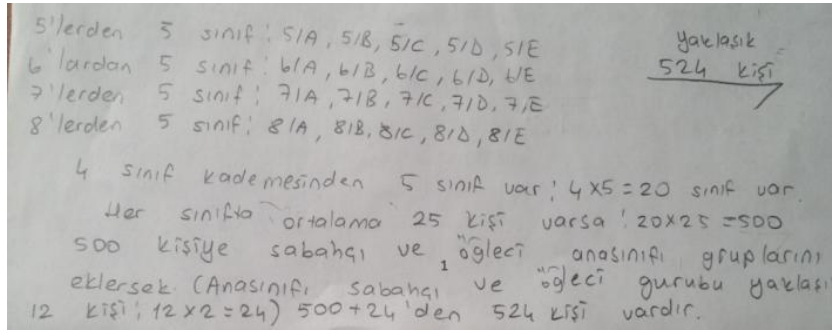 5'lerden 5 sınıf: 5/A, 5/B, 5/C, 5/D, 5/E
6'lardan 5 sınıf: 6/A, 6/B, 6/C, 6/D, 6/E
7'lerden 5 sınıf: 7/A, 7/B, 7/C, 7/D, 7/E
8'lerden 5 sınıf: 8/A, 8/B, 8/C, 8/D, 8/E
yaklaşık
524 kişi
4 sınıf kademesinden 5 sınıf var: 4x5=20 sınıf var.
Her sınıfta ortalama 25 kişi varsa: 20x25=500
500 kişiye sabahçı ve öğleci anasınıfı gruplarını
1
eklersek. (Anasınıfı sabahçı ve öğleci gurubu yaklaşı
12 kişi: 12x2=24) 500+24'den 524 kişi vardır.